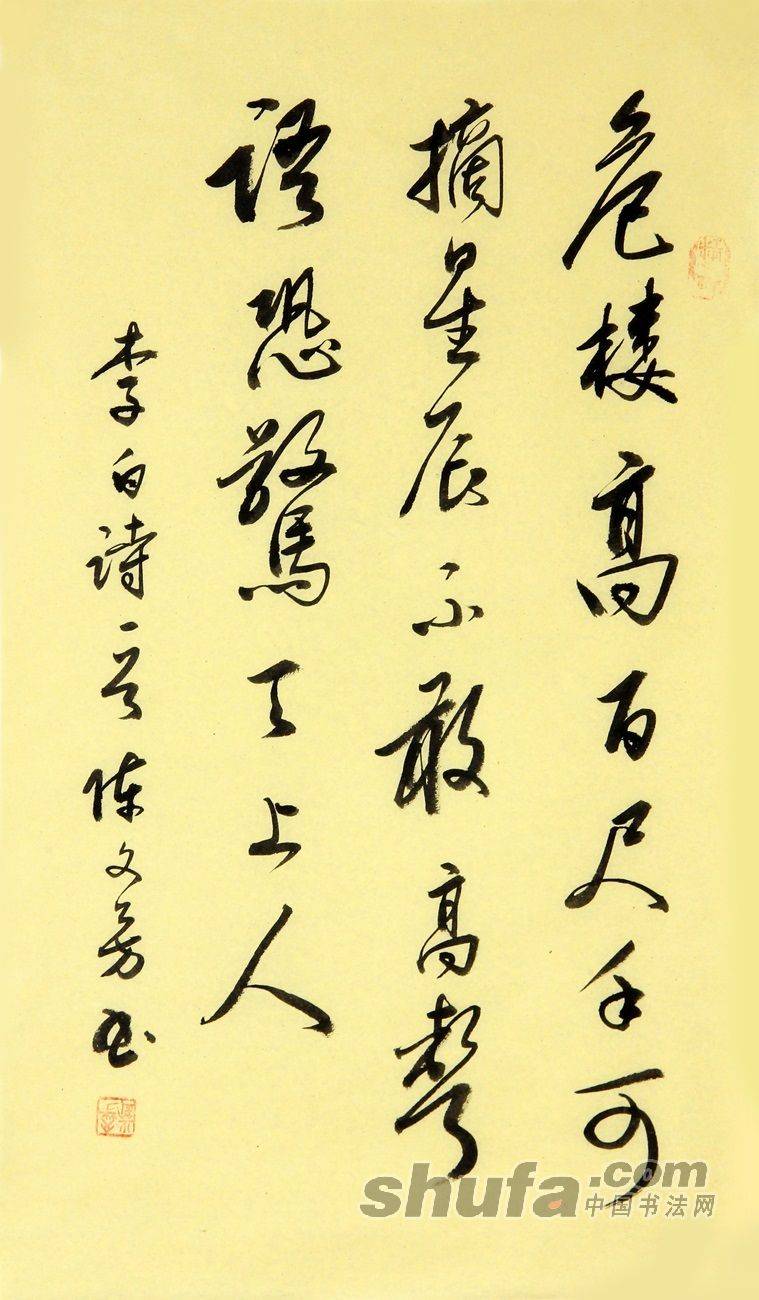 危楼高百尺手可
摘星辰不敢高聲
語恐驚天上人
李白詩一首 陳文芳书
shufa.com
中国书法网